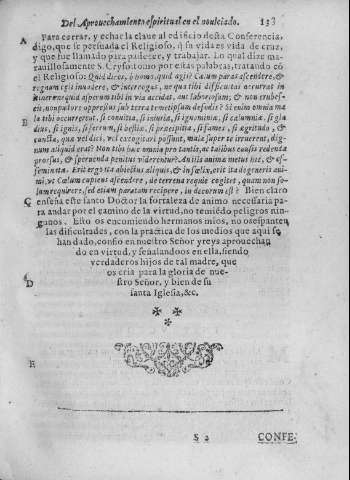 Del Aprouechamiento espiritual en el nouiciado. 133
A Para cerrar, y echar la claue al edificio desta Conferencia,
digo, que se persuada el Religioso, q̃ su vida es vida de cruz,
y que fue llamado para padecer, y trabajar. Lo qual dize ma-
rauillosamente S. Crysostomo por estas palabras, tratando cõ
el Religioso: Quid dicis, ò homo, quid agis? Cœlum paras ascendere, &
regnum illud inuadere, & interrogas, ne qua tibi difficultas occurrat in
itinere, nequid asperum tibi in via accidat, aut laboriosum; & non erubes-
cis, non pudore oppressus sub terra metipsum defodis? Si enim omnia ma-
B la tibi occurrerent, si conuitia, si iniuria, si ignominia, si calumnia, si gla
dius, si ignis, si ferrum, si bestiæ, si præcipitia, si fames, si ægritudo, &
cuncta, quæ vel dici, vel excogitari possunt, mala super te irruerent, dig-
num aliquid erat? Non tibi hæc omnia pro tantis, ac talibus causis ridenda
prorsus, & spernenda penitus viderentur? An illa animi metus sint, & ef-
feminati. Erit ergo ita abiectus aliquis, & infœlix, erit ita degeneris ani-
mi, vt Cœlum cupiens ascendere, de terrena requie cogitet, quam non so-
lum requirere, sed etiam paratam recipere, indecorum est? Bien claro
C enseña este santo Doctor la fortaleza de animo necessaria pa-
ra andar por el camino de la virtud, no temiẽdo peligros nin-
gunos. Esto os encomiendo hermanos mios, no os espanten
las dificultades, con la practica de los medios que aqui se
han dado, confio en nuestro Señor yreys aprouechan
do en virtud, y señalandoos en ella, siendo
verdaderos hijos de tal madre, que
os cria para la gloria de nue-
D stro Señor, y bien de su
santa Iglesia, &c.
E
S 2 CONFE-